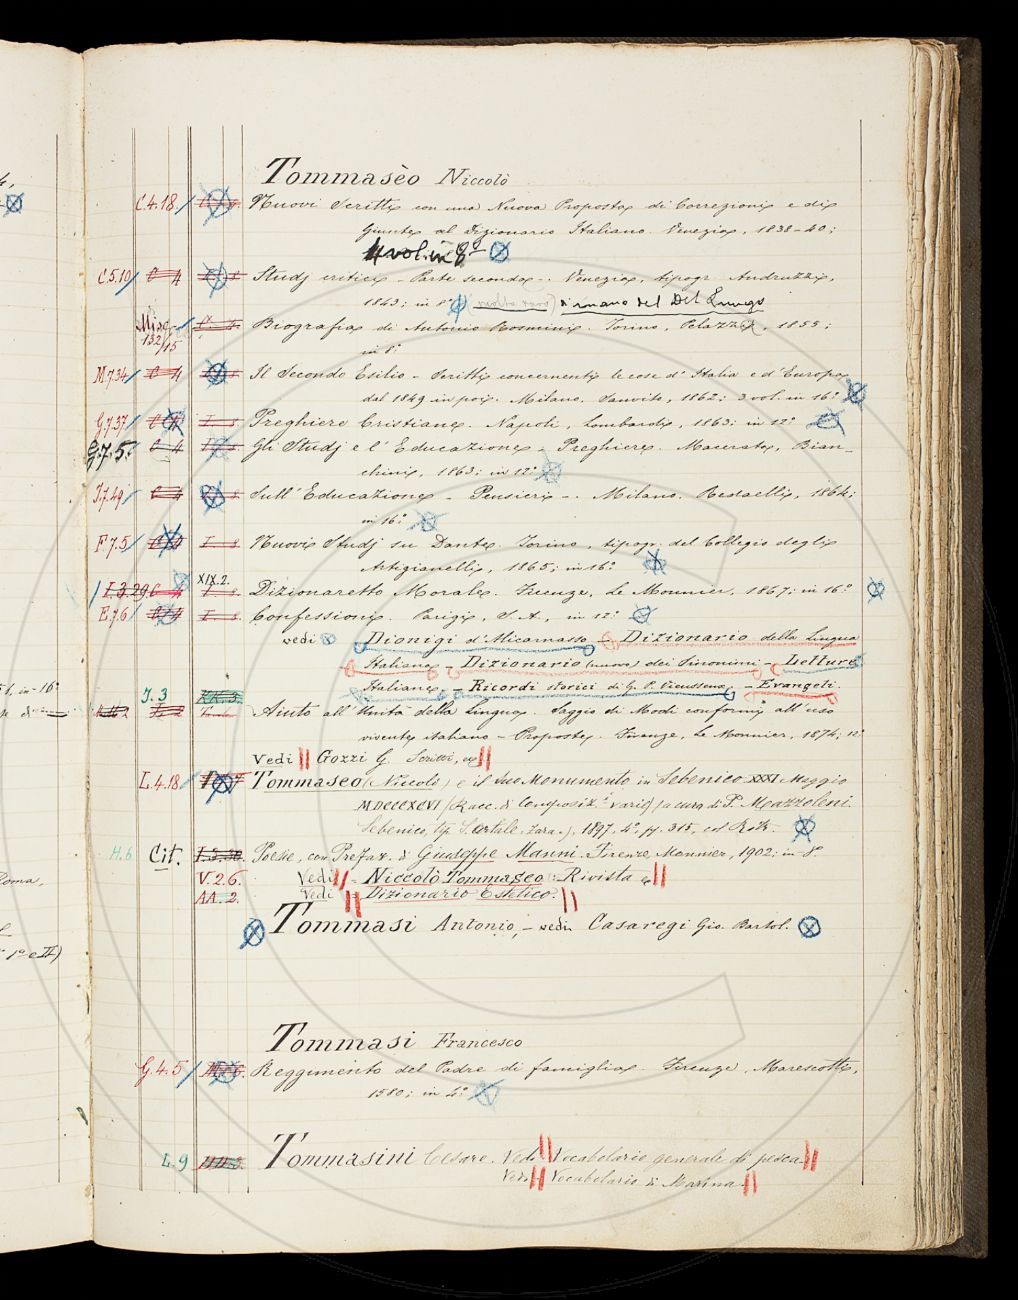 Tommasèo Niccolò
C.4.18 Nuovi Scritti con una Nuova Proposta di Correzioni e di
Giunte al Dizionario Italiano. Venezia, 1838-40;
4 vol. in 8º
C.5.10 Studj critici - Parte seconda. Venezia, tipogr. Andruzzi,
1843; in 8º (molto raro) di mano del Del Lungo
Misc. 132/15 Biografia di Antonio Rosmini. Torino, Pelazza, 1855;
in 8º
M.7.34 Il Secondo Esilio - Scritti concernenti le cose d'Italia e d'Europa
dal 1849 in poi. Milano, Sanvito, 1862; 3 vol. in 16º
G.7.37 Preghiere Cristiane. Napoli, Lombardi, 1863; in 12º
G.7.5. Gli Studj e l'Educazione - Preghiere. Macerata, Bian-
chini, 1863; in 12º
I.7.49 Sull'Educazione - Pensieri -. Milano. Redaelli, 1864;
in 16º
F.7.5 Nuovi Studj su Dante. Torino, tipogr. del Collegio degli
Artigianelli, 1865; in 16º
I.3.29 XIX.2. Dizionaretto Morale. Firenze, Le Monnier, 1867; in 16º
E.7.6 Confessioni. Parigi, S.A., in 12º
vedi Dionigi d'Alicarnasso - Dizionario della Lingua
Italiana - Dizionario (nuovo) dei Sinonimi - Letture
Italiane - Ricordi storici di G. P. Vieusseux - Evangeli.
I.3 Aiuto all'Unità della Lingua. Saggio di Modi conformi all'uso
vivente italiano - Proposte. Firenze, Le Monnier, 1874; 12º
Vedi Gozzi G. Scritti, ec.
L.4.18 Tommaseo (Niccolò) e il suo Monumento in Sebenico XXXI Maggio
MDCCCXCVI (Racc. di Composiz. varie) a cura di P. Mazzoleni
Sebenico, tip. S. Artale. Zara., 1897. 4º, pp. 315, col Ritr.
H.6 Cit. I.3.30. Poesie, con Prefaz. di Giuseppe Manni. Firenze Monnier, 1902; in 8º
V.2.6. Vedi - Niccolò Tommaseo: Rivista
AA.2. Vedi = Dizionario Estetico.
Tommasi Antonio, - vedi Casaregi Gio. Bartol.
Tommasi Francesco
G.4.5 Reggimento del Padre di famiglia. Firenze, Marescotti,
1580; in 4º
L.9 Tommasini Cesare. Vedi Vocabolario generale di pesca
Vedi Vocabolario di Marina